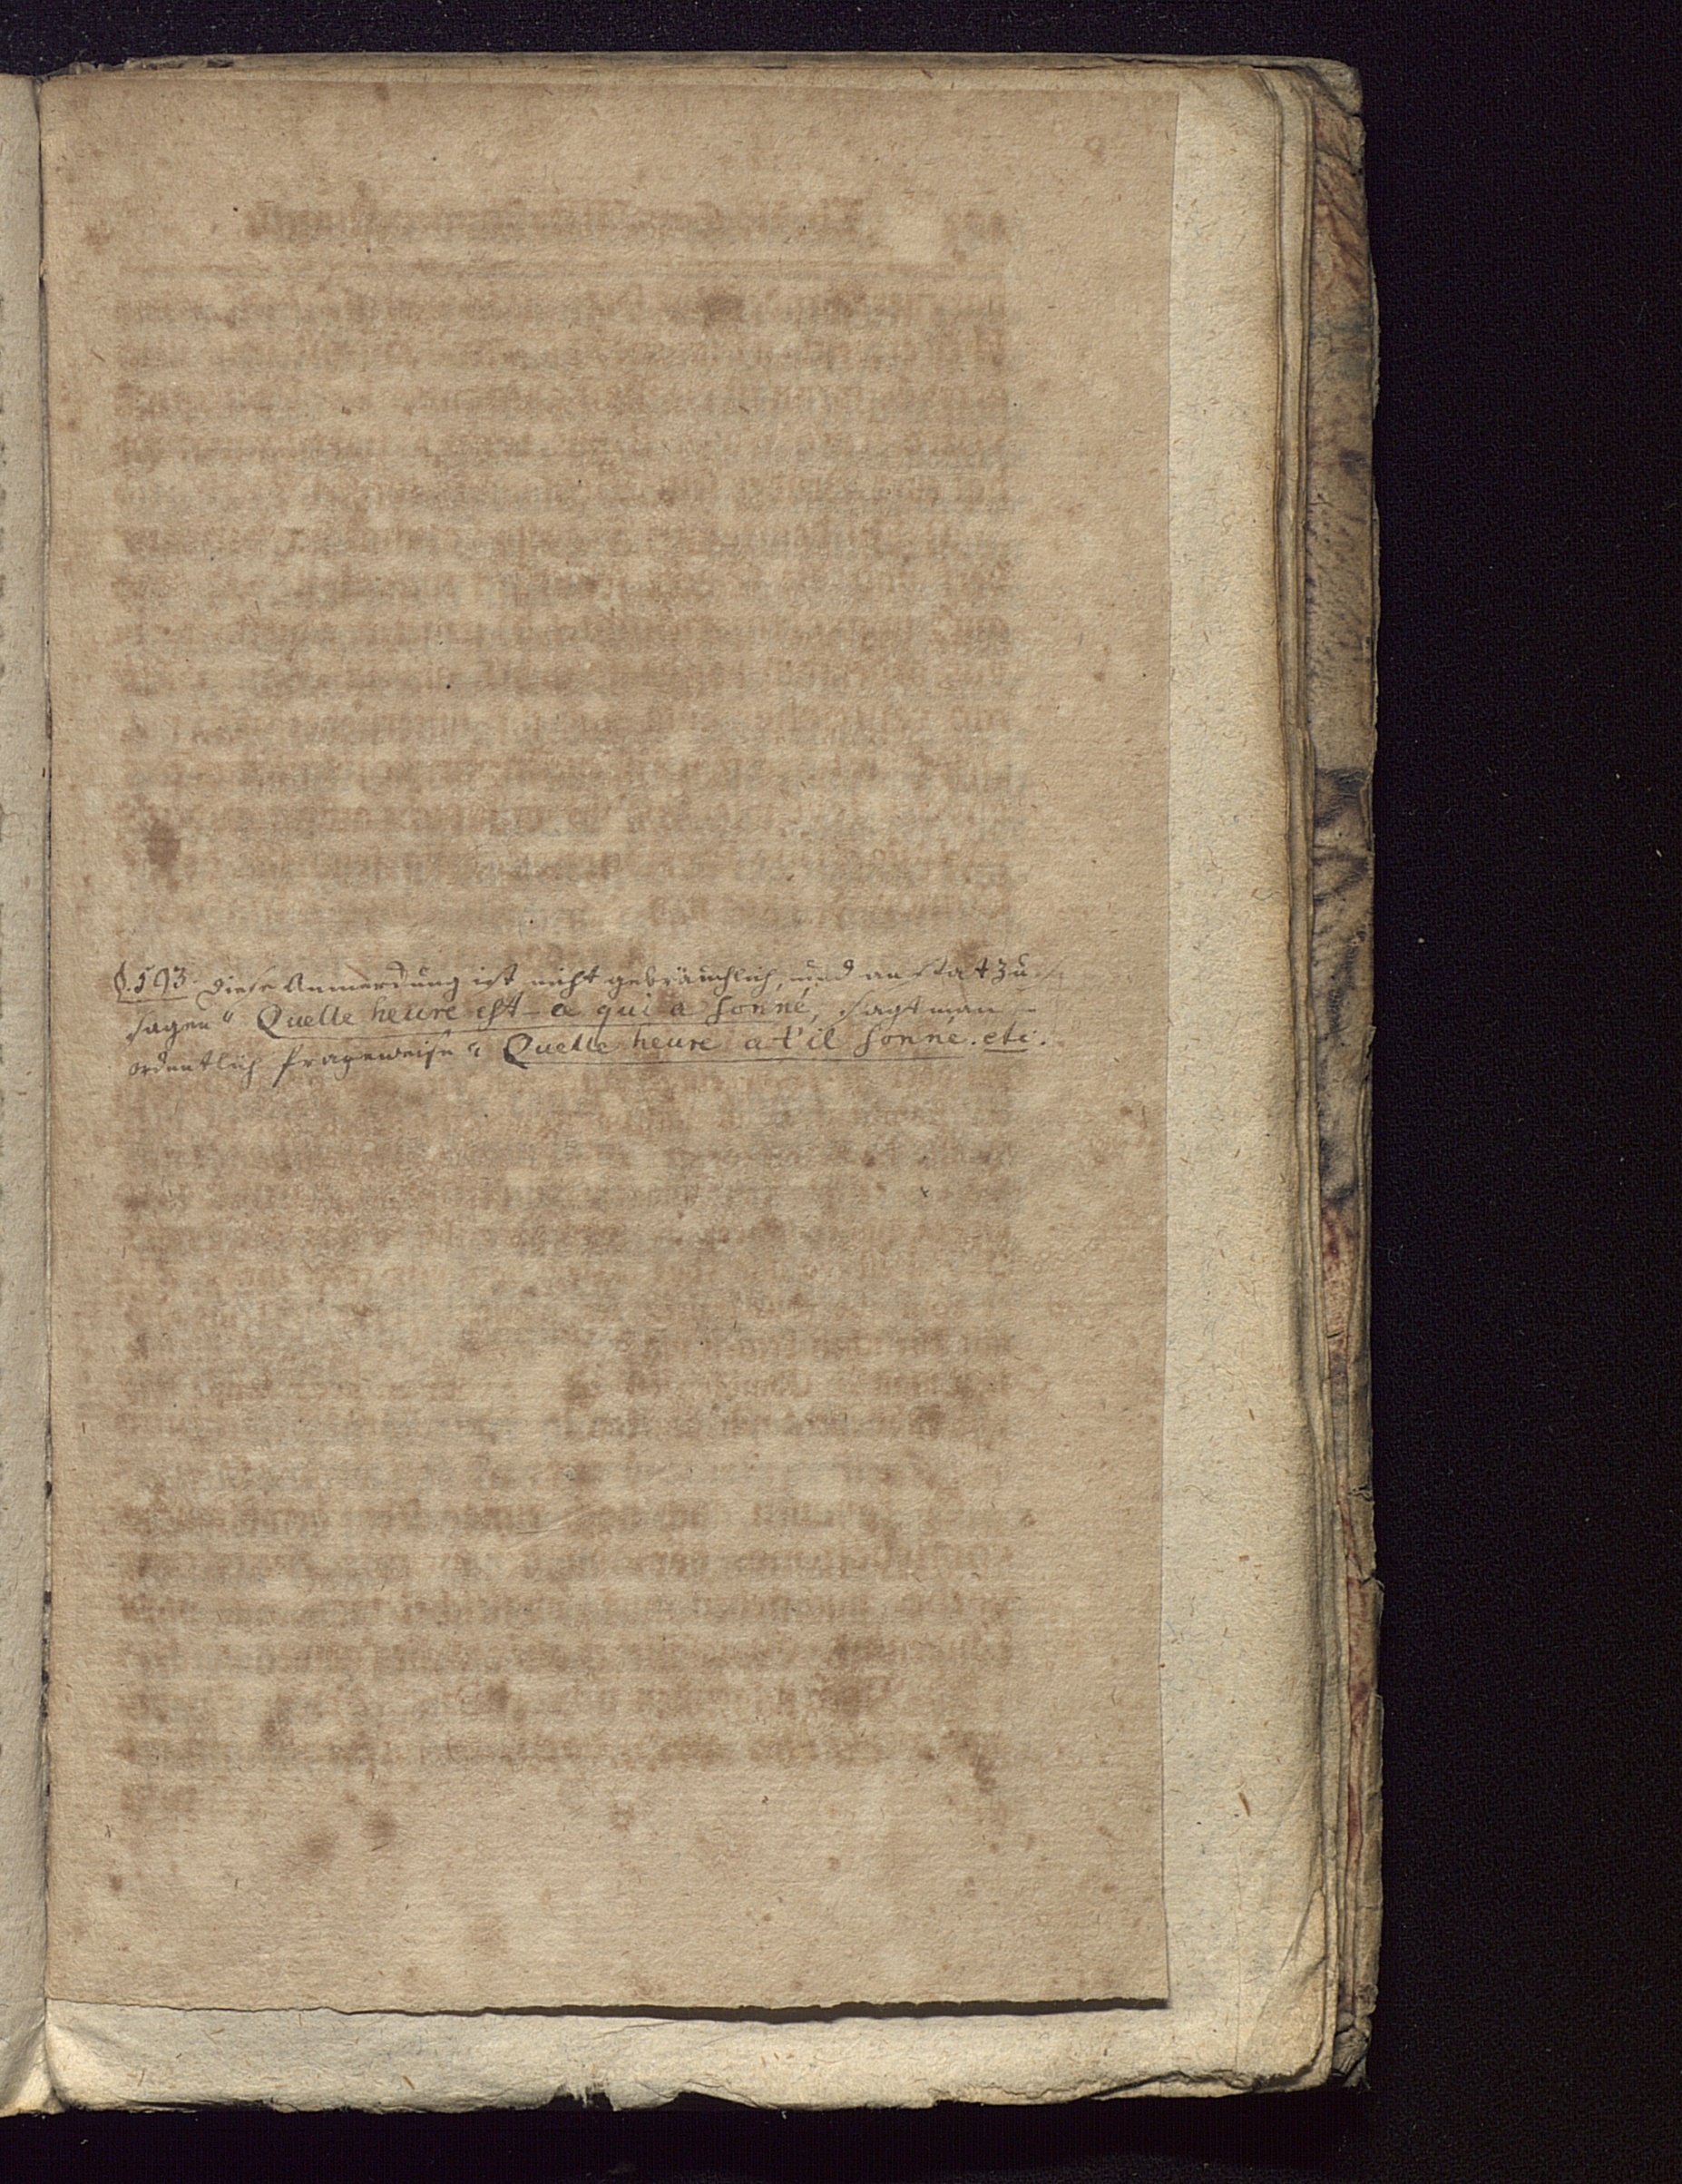 §. 593. Diese Anmerckung ist nicht gebräuchlich, und anstat zu
sagen „ Quelle heure est-ce qui a sonné, sagt man
ordentlich frageweise „ Quelle heure a t'il sonné. etc.